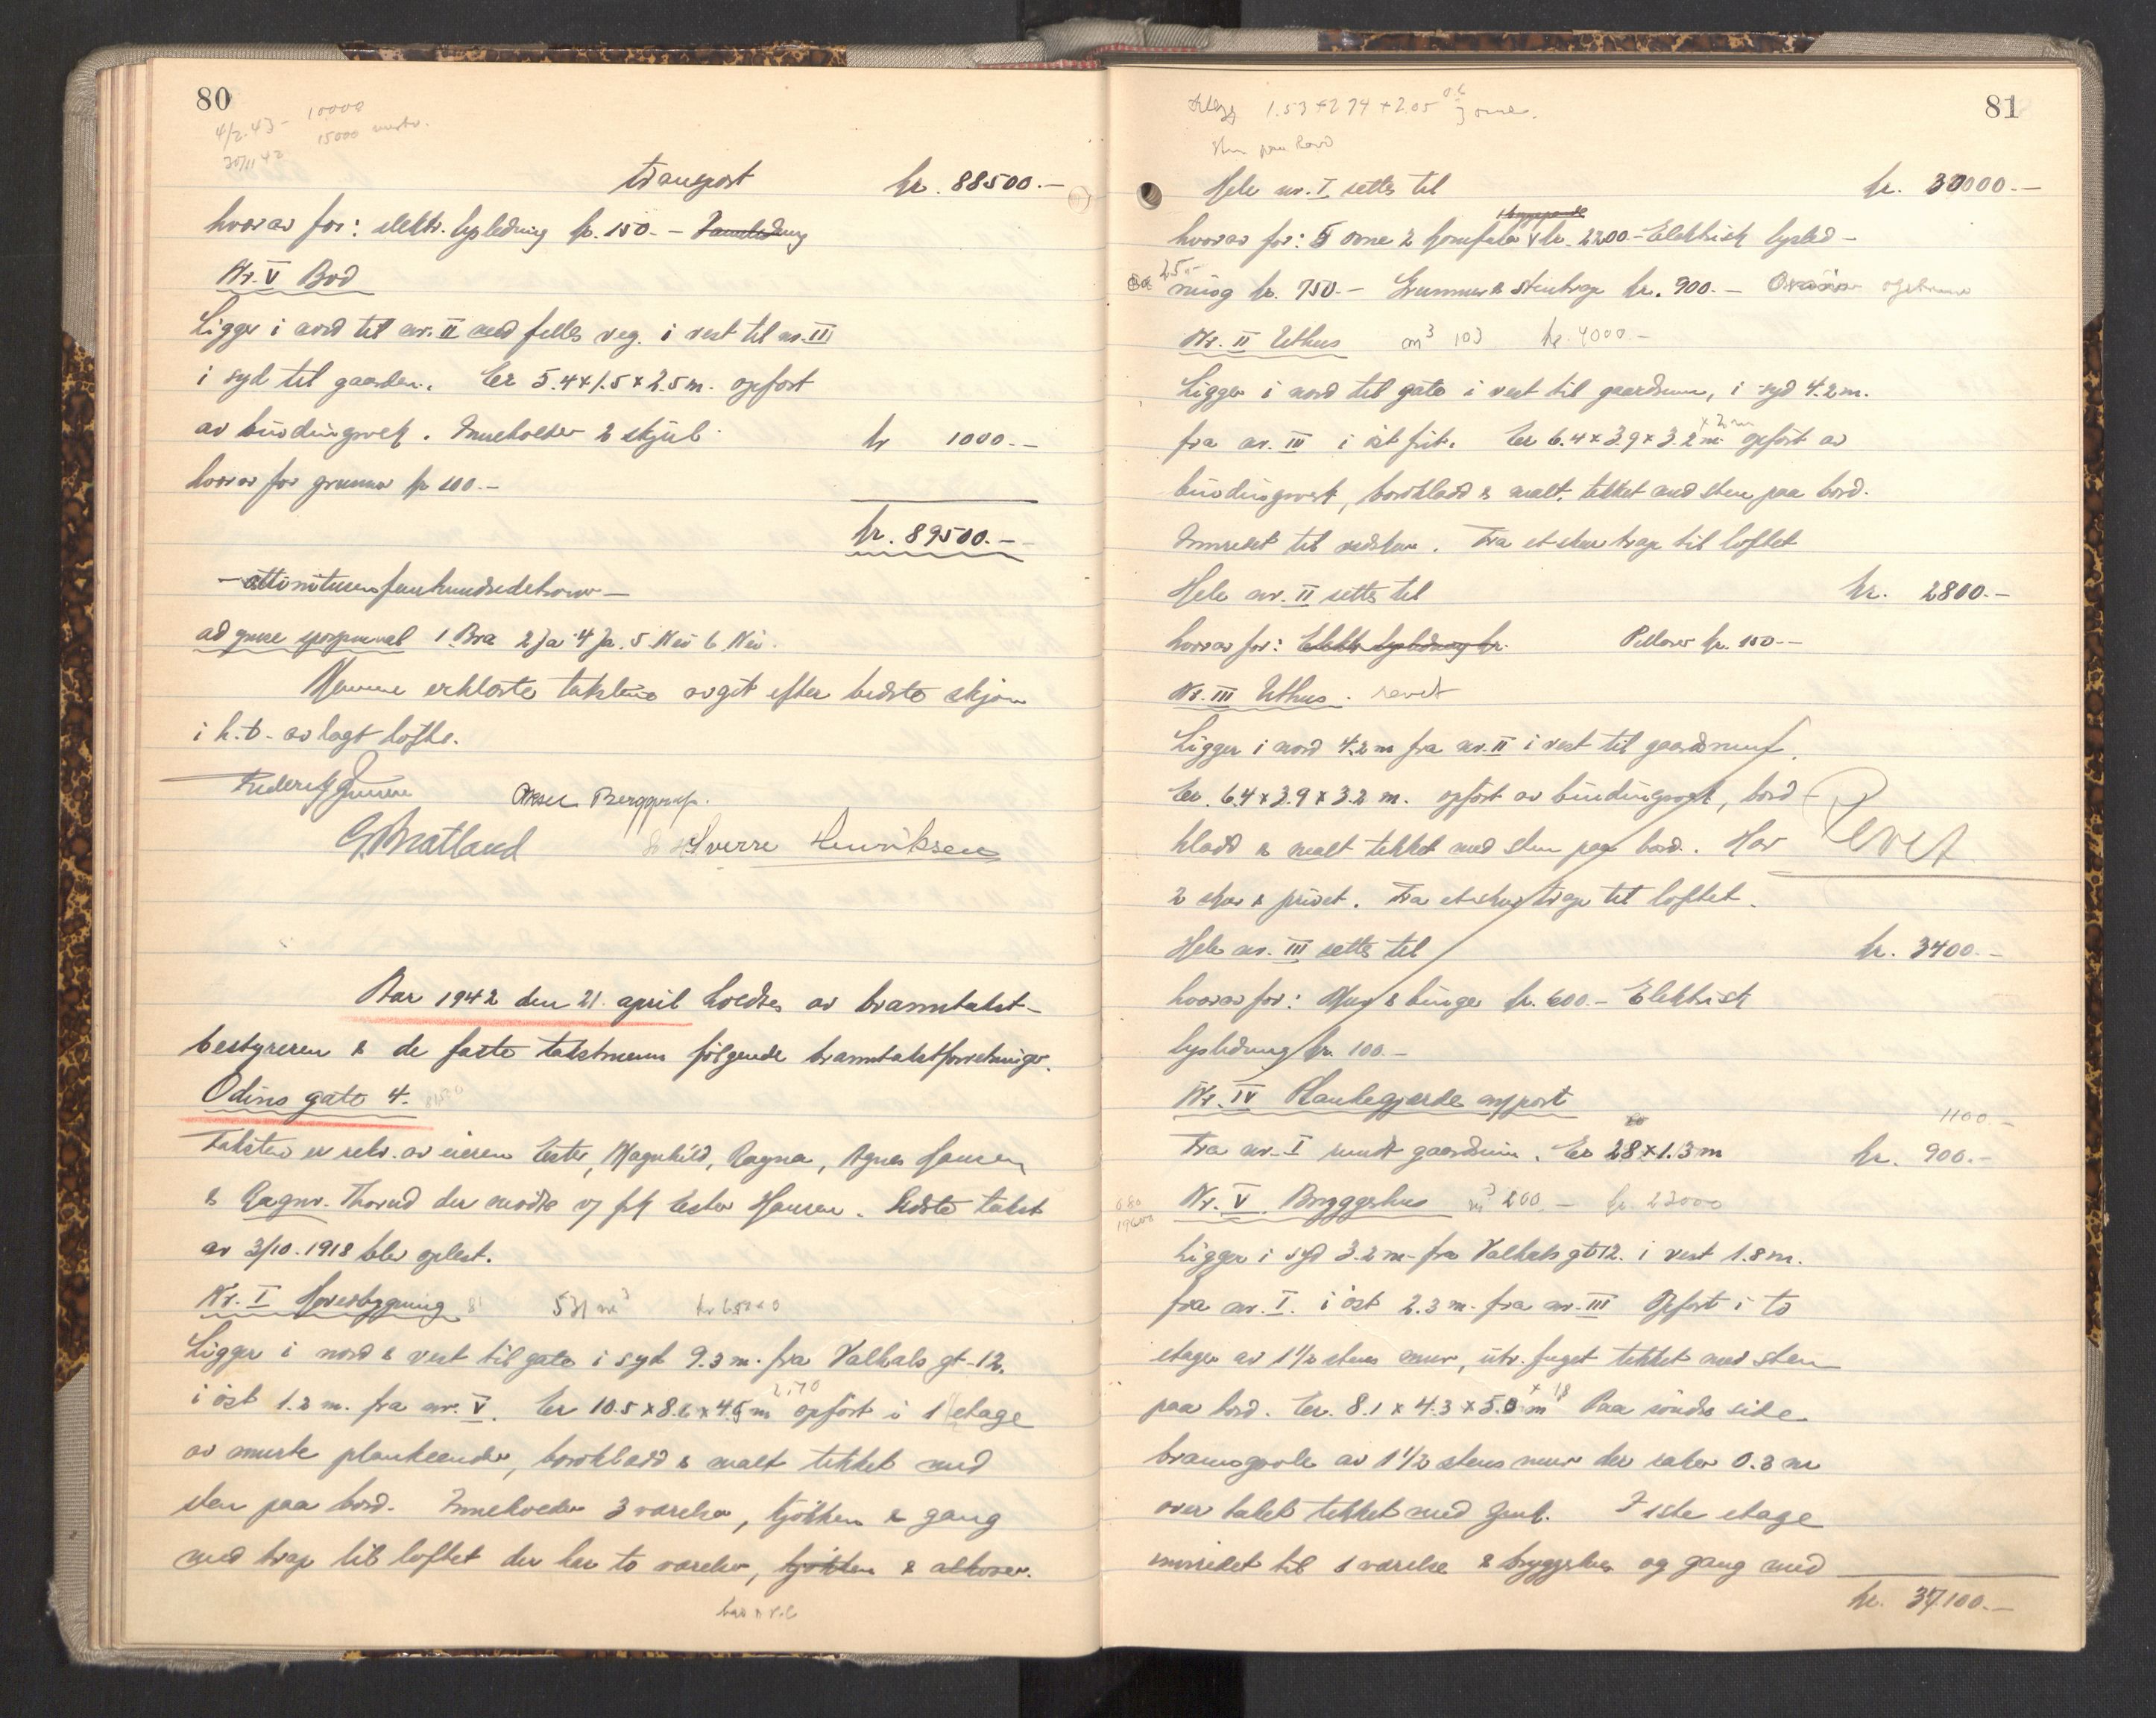 80
4/2.43 - 10000
20/11 42 15000
Transport kr. 88500.-
hvorav for: elektr. lysledning kr. 150.-
Nr. V Bod
Ligger i nord til nr. II med felles veg. i vest til nr. III
i syd til gaarden. Er 5.4 x 1.5 x 2.5 m. opført
av bindingverk. Inneholder 2 skjul kr 1000.-
hvorav for grunnmur kr 100.-
kr. 89500.-
- åttinitusenfemhundredekroner -
ad grønne spørsmaal 1 Bra 2 Ja 4 Ja. 5 Nei 6 Nei.
Mennene erklærte taksten avgit efter bedste skjøn
i h.t. avlagt løfte.
G. Bratland Sverre Henriksen
Aar 1942 den 21. april holdtes av branntakst-
bestyreren & de faste takstmenn følgende branntakstforretninger.
Odins gate 4.
Taksten er rekv. av eieren Ester, Magnhild, Ragna, Agnes Hansen
& Ragnv. Thorud der mødte v/ frk Ester Hansen. Sidste takst
av 3/10. 1918 blev oplest.
Nr. I Hovedbygning 531 m3
Ligger i nord & vest til gate i syd 9.3 m. fra Valhals gt. 12.
i øst 1.2 m. fra nr. V. Er 10.5 x 8.6 x 4.5 m opført i 1 etage
av murte plankeender, bordkledd & malt tekket med
sten paa bord. Inneholder 3 værelser, kjøkken & gang
med trap til loftet der har to værelser, kjøkken & alkover.
81
Tillegg 1.53 + 2.74 + 2.05
sten paa bord
Hele nr. I settes til kr. 30000.-
hvorav for: 5 ovne 2 komfyrer kr. 2200.- Elektrisk lysled-
ning kr. 750.- Grunnmur & stentrap kr. 900.-
Nr. II Uthus m3 103 kr. 4000.-
Ligger i nord til gate i vest til gaardsrum, i syd 4.2 m.
fra nr. III i øst frit. Er 6.4 x 3.9 x 3.2 m opført av
bindingverk, bordkledd & malt, tekket med sten paa bord.
Innredet til vedskur. Fra et skur trap til loftet
Hele nr. II settes til kr. 2800.-
hvorav for: Elektr. lysledning kr. Pillarer kr. 150.-
Nr. III Uthus. revet
Ligger i nord 4.2 m fra nr. II i vest til gaardsrum.
Er. 6.4 x 3.9 x 3.2 m. opført av bindingverk, bord-
kledd & malt tekket med sten paa bord. Har Revet
2 skur & privet. Fra et skur trap til loftet.
Hele nr. III settes til kr. 3400.-
hvorav for: Mur & binge kr. 600.- Elektrisk
lysledning kr. 100.-
Nr. IV Plankegjerde m/port 1100.-
Fra nr. I rundt gaardsrum. Er 28 x 1.3 m kr. 900.-
Nr. V. Bryggerhus m3 200.- kr. 23000
Ligger i syd 3.2 m. fra Valhals gt 12. i vest 1.8 m.
fra nr. I. i øst 2.3 m. fra nr. III Opført i to
etager av 1½ stens mur, utv. fuget tekket med sten
paa bord. Er. 8.1 x 4.3 x 5.0 m Paa søndre side
branngavle av 1½ stens mur der raker 0.3 m
over taket tekket med zink. I 1ste etage
innredet til 1 værelse & bryggerhus og gang med
kr. 37100.-